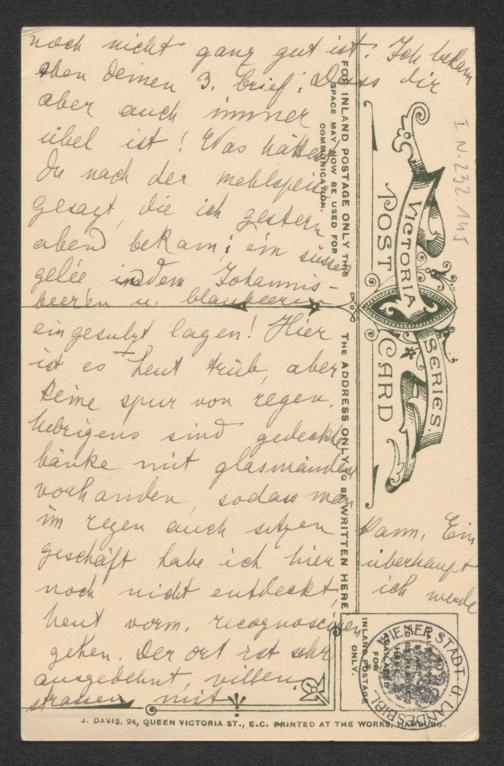 noch nicht ganz gut ist. Ich bekam
eben deinen 3. brief: Dass dir
aber auch immer
übel ist! Was hättest
du nach der mehlspeise
gesagt, die ich gestern
abend bekam: ein süsses
gelée in dem Johannis-
beeren u. blaubeeren
eingesulzt lagen! Hier
ist es heut trüb, aber
keine spur von regen.
Uebrigens sind gedeckte
bänke mit glaswänden
vorhanden, sodass man
im regen auch sitzen kann. Ein
geschäft habe ich hier überhaupt
noch nicht entdeckt; ich werde
heut vorm. recognoscieren
gehen. Der ort ist sehr
ausgedehnt, villen,
strassen mit
FOR INLAND POSTAGE ONLY THIS
SPACE MAY NOW BE USED FOR
COMMUNICATION.
THE ADDRESS ONLY TO BE WRITTEN HERE
VICTORIA SERIES
POST CARD
I.N. 232.145
FOR
INLAND POSTAGE
ONLY.
WIENER STADT- U. LANDESBIBL.
J. DAVIS, 24, QUEEN VICTORIA ST., E.C. PRINTED AT THE WORKS, HAMBURG.